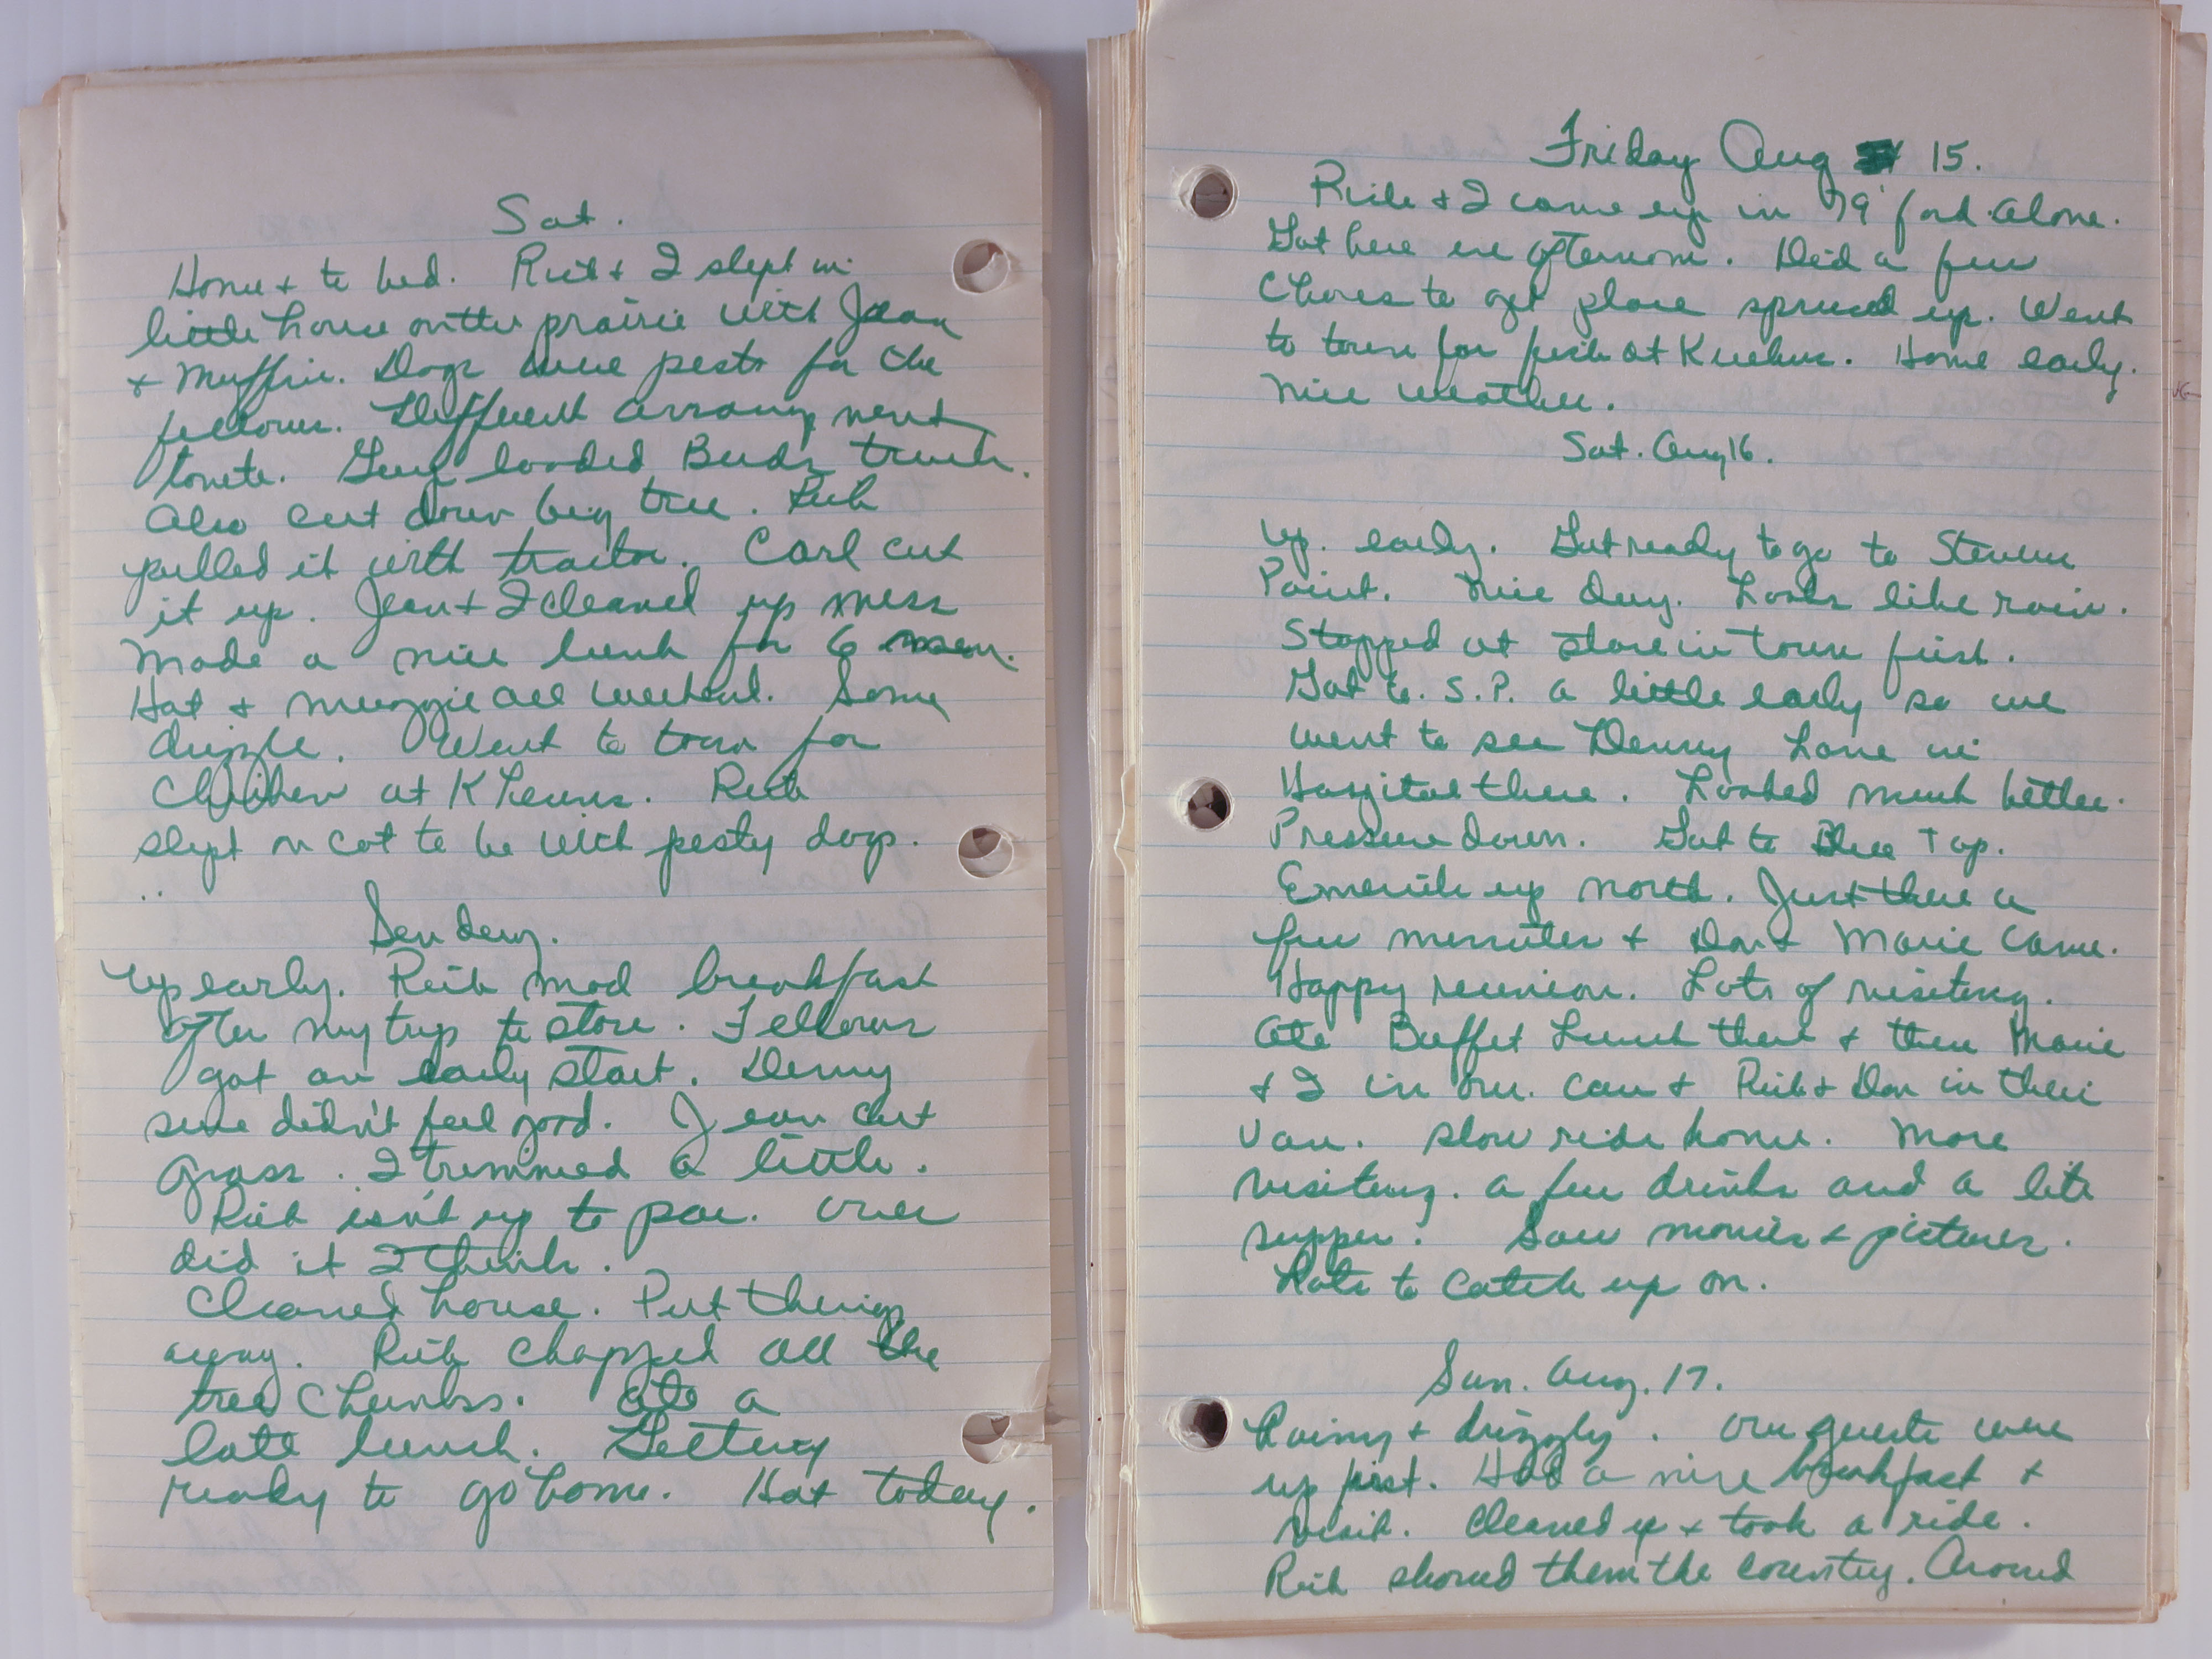 Sat.
Home + to bed. Rich + I slept in
little house on the prairie with Jean
+ Muffin. Dogs were pests for the
fellows. Different arrangement
tonite. Guy loaded Buds truck.
Also cut down big tree. Rich
pulled it with tractor. Carl cut
it up. Jean + I cleaned up mess
Made a nice lunch for 6 men.
Hot + muggie all weekend. Some
drizzle. Went to town for
Chicken at
slept on cot to be with pesty dogs.
Sunday.
Up early. Rich mad breakfast
after my trip to store. Fellows
got an early start. Denny
sure didn't feel good. Jean cut
grass. I trimmed a little.
Rich isn't up to par. Over
did it I think.
Cleaned house. Put things
away. Rich chopped all the
tree chunks. Ate a
late lunch. Getting
ready to go home. Hot today.
Friday Aug 15.
Rich + I came up in 79' ford. Alone.
Got here in afternoon. Did a few
Chores to get place spruced up. Went
to town for fish at Home early.
Nice weather.
Sat. Aug 16.
Up early. Got ready to go to Stevens
Point. Nice day. Looks like rain.
Stopped at store in town first.
Got to S.P. a little early so we
went to see Denny Lane in
Hospital there. Looked much better.
Pressure down. Got to Blue Top.
up north. Just there a
few minutes + Don + Marie came.
Happy reunion. Lots of visiting.
Ate Buffet Lunch there + then Marie
+ I in our car + Rich + Don in their
Van. Slow ride home. More
visiting. A few drinks and a lite
supper. Saw movies + pictures.
Lots to catch up on.
Sun. Aug. 17.
Rainy + drizzly. Our guests were
up first. Had a nice breakfast +
visit. Cleaned up + took a ride.
Rich showed them the country. Around